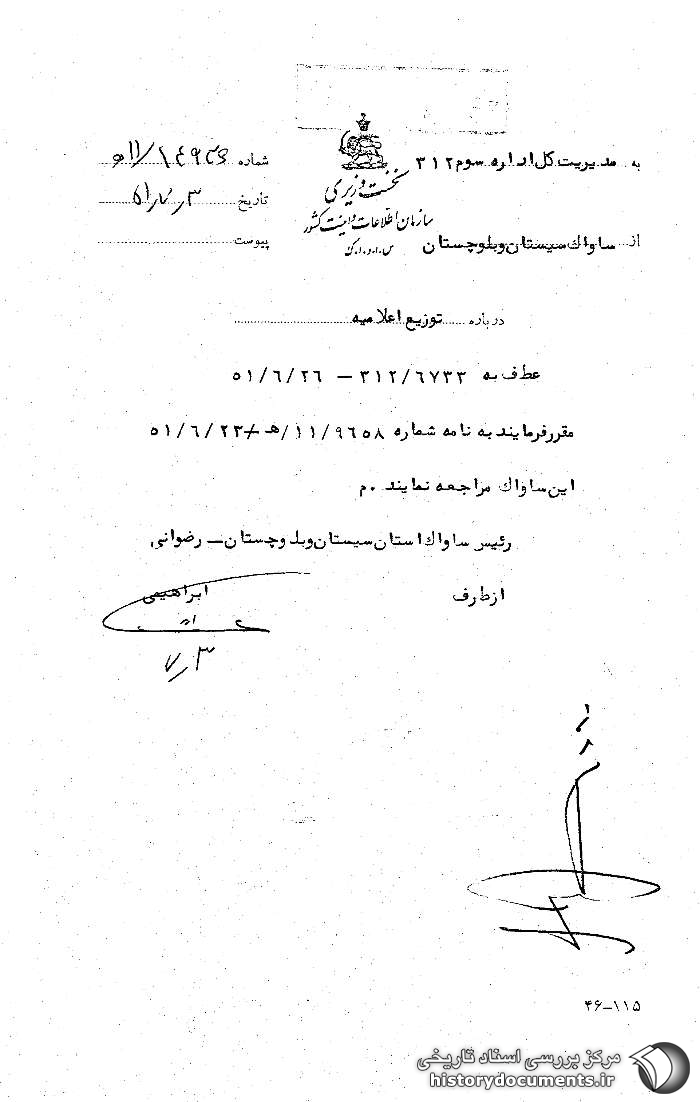 به مدیریت کل اداره سوم ۳۱۲
نخست وزیری
سازمان اطلاعات و امنیت کشور
س.ا.و.ا.ک
شماره
تاریخ ۵۱/۷/۳
پیوست
از ساواک سیستان و بلوچستان
درباره توزیع اعلامیه
عطف به ۳۱۲/۶۷۳۳ – ۵۱/۶/۲۶
مقرر فرمایند به نامه شماره ۱۱/۹۶۵۸/هـ ۵۱/۶/۲۳
این ساواک مراجعه نمایند .م
رئیس ساواک استان سیستان و بلوچستان – رضوانی
از طرف ابراهیمی
۷/۳
۴۶–۱۱۵
مرکز بررسی اسناد تاریخی
historydocuments.ir